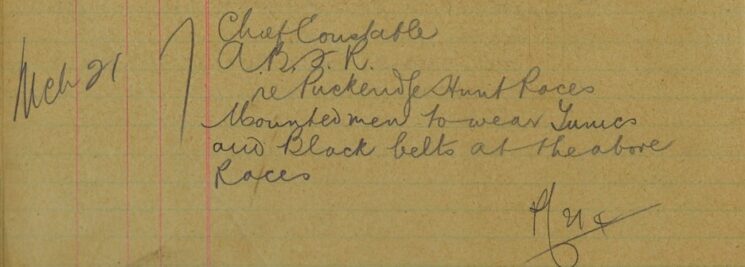 Mch 21
Chief Constable
re Puckeridge Hunt Races
Mounted men to wear Tunics
and Black belts at the above
Races